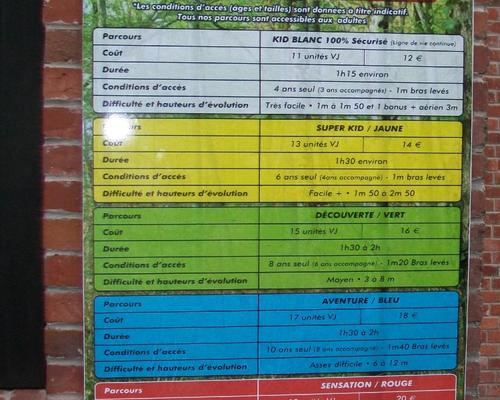 *Les conditions d'accès (âges et tailles) sont données à titre indicatif.
Tous nos parcours sont accessibles aux adultes
Parcours KID BLANC 100% Sécurisé (Ligne de vie continue)
Coût 11 unités VJ 12 €
Durée 1h15 environ
Conditions d'accès 4 ans seul (3 ans accompagnés) - 1m bras levés
Difficulté et hauteurs d'évolution Très facile • 1m à 1m 50 et 1 bonus + aérien 3m
Parcours SUPER KID / JAUNE
Coût 13 unités VJ 14 €
Durée 1h30 environ
Conditions d'accès 6 ans seul (4ans accompagné) - 1m bras levés
Difficulté et hauteurs d'évolution Facile + • 1m 50 à 2m 50
Parcours DÉCOUVERTE / VERT
Coût 15 unités VJ 16 €
Durée 1h30 à 2h
Conditions d'accès 8 ans seul (6 ans accompagné) - 1m20 Bras levés
Difficulté et hauteurs d'évolution Moyen • 3 à 8 m
Parcours AVENTURE / BLEU
Coût 17 unités VJ 18 €
Durée 1h30 à 2h
Conditions d'accès 10 ans seul (8 ans accompagné) - 1m40 Bras levés
Difficulté et hauteurs d'évolution Assez difficile • 6 à 12 m
Parcours SENSATION / ROUGE
20 €